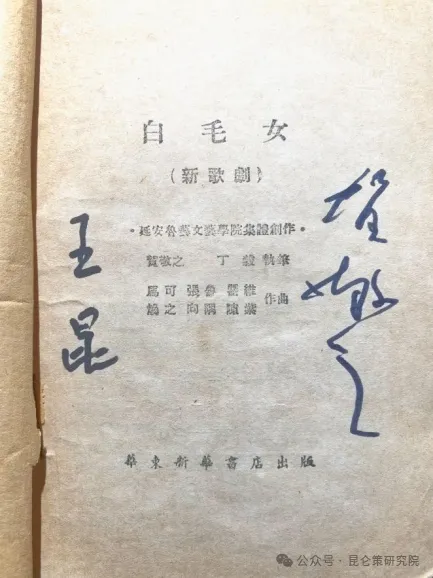 白毛女
（新歌劇）
·延安魯藝文藝學院集體創作·
賀敬之 丁毅 執筆
馬可 張魯 瞿維
煥之 向隅 陳紫 作曲
華東新華書店出版
王昆
贺敬之
公众号·昆仑策研究院